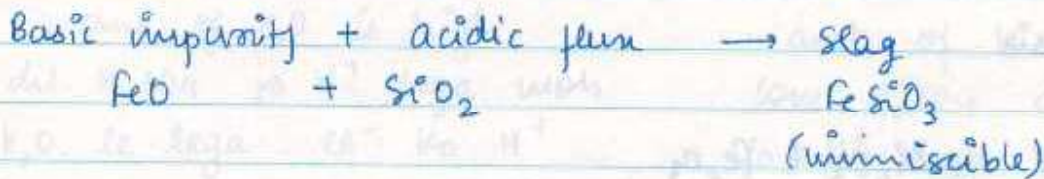 Basic impurity + acidic flux → slag
FeO + SiO₂ FeSiO₃
(immiscible)